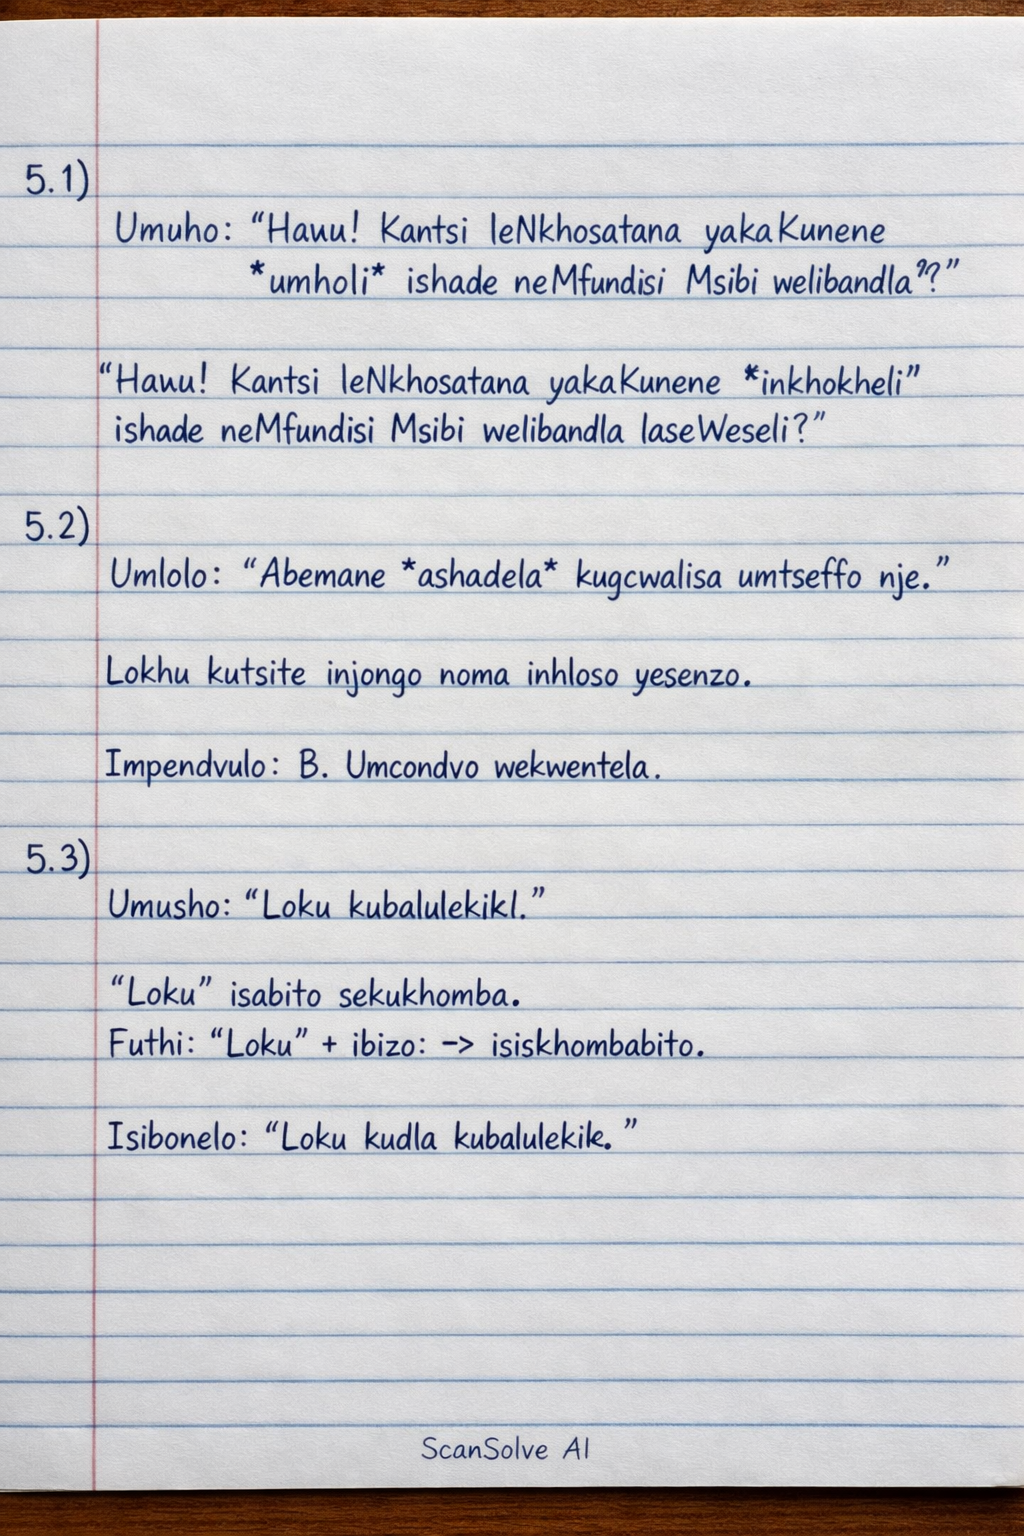 5.1)
Umuho: “Hauu! Kantsi leNkhosatana yakaKunene
*umholi* ishade neMfundisi Msibi welibandla??”
“Hauu! Kantsi leNkhosatana yakaKunene *inkhokheli”
ishade neMfundisi Msibi welibandla laseWeseli?”
5.2)
Umlolo: “Abemane *ashadela* kugcwalisa umtseffo nje.”
Lokhu kutsite injongo noma inhloso yesenzo.
Impendvulo: B. Umcondvo wekwentela.
5.3)
Umusho: “Loku kubalulekikl.”
“Loku” isabito sekukhomba.
Futhi: “Loku” + ibizo: -> isiskhombabito.
Isibonelo: “Loku kudla kubalulekile.”
ScanSolve AI